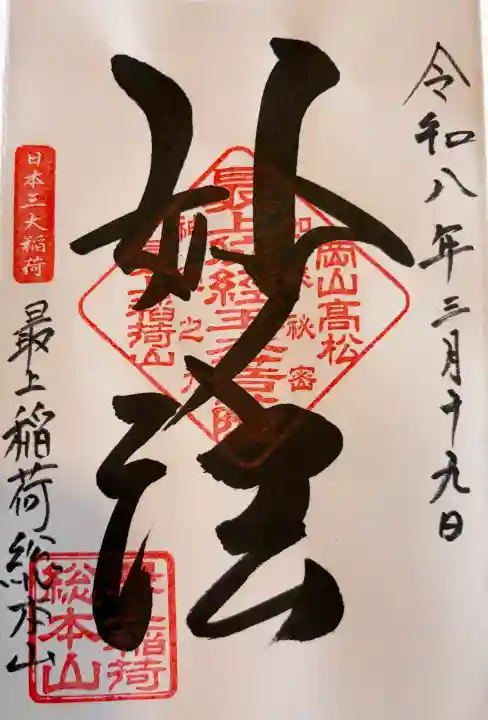 令和八年三月十九日
妙法
岡山高松
最上稲荷山
日本三大稲荷
最上稲荷総本山
最上稲荷
総本山